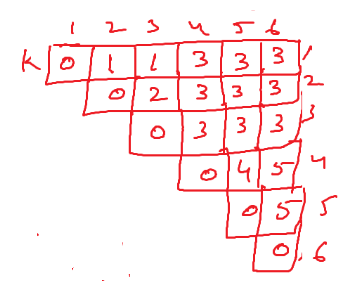 1 2 3 4 5 6
K 0 1 1 3 3 3 1
0 2 3 3 3 2
0 3 3 3 3
0 4 5 4
0 5 5
0 6